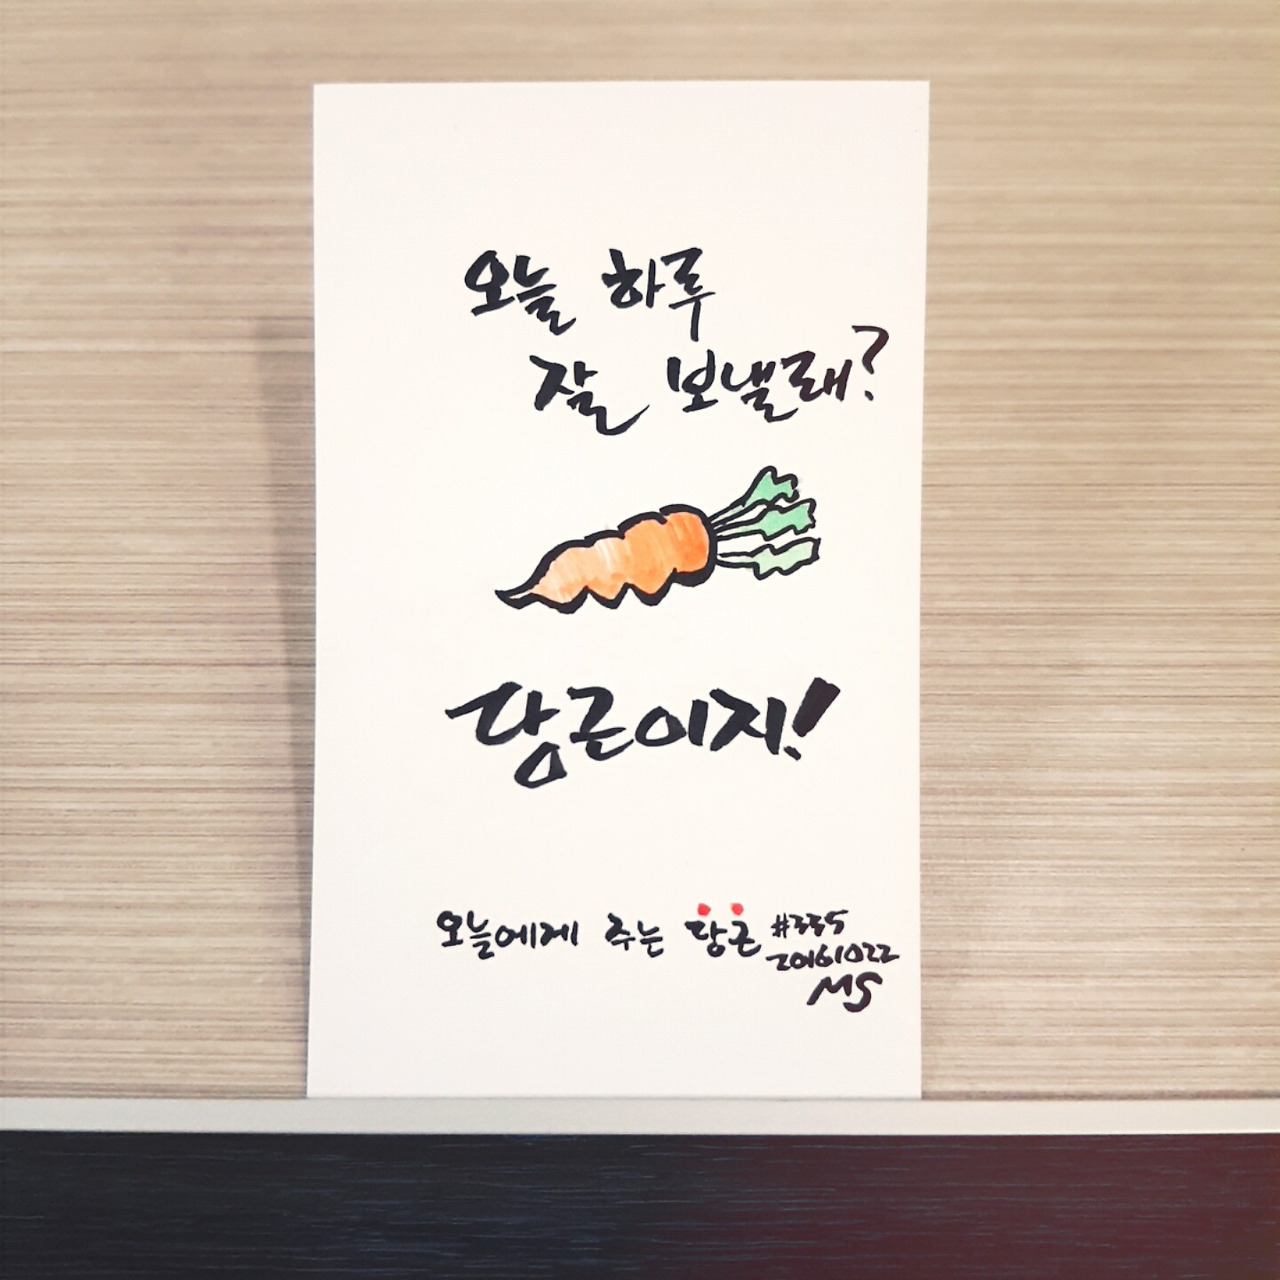 오늘 하루
잘 보낼래?
당근이지!
오늘에게 주는 당근 #335
20161022
MS